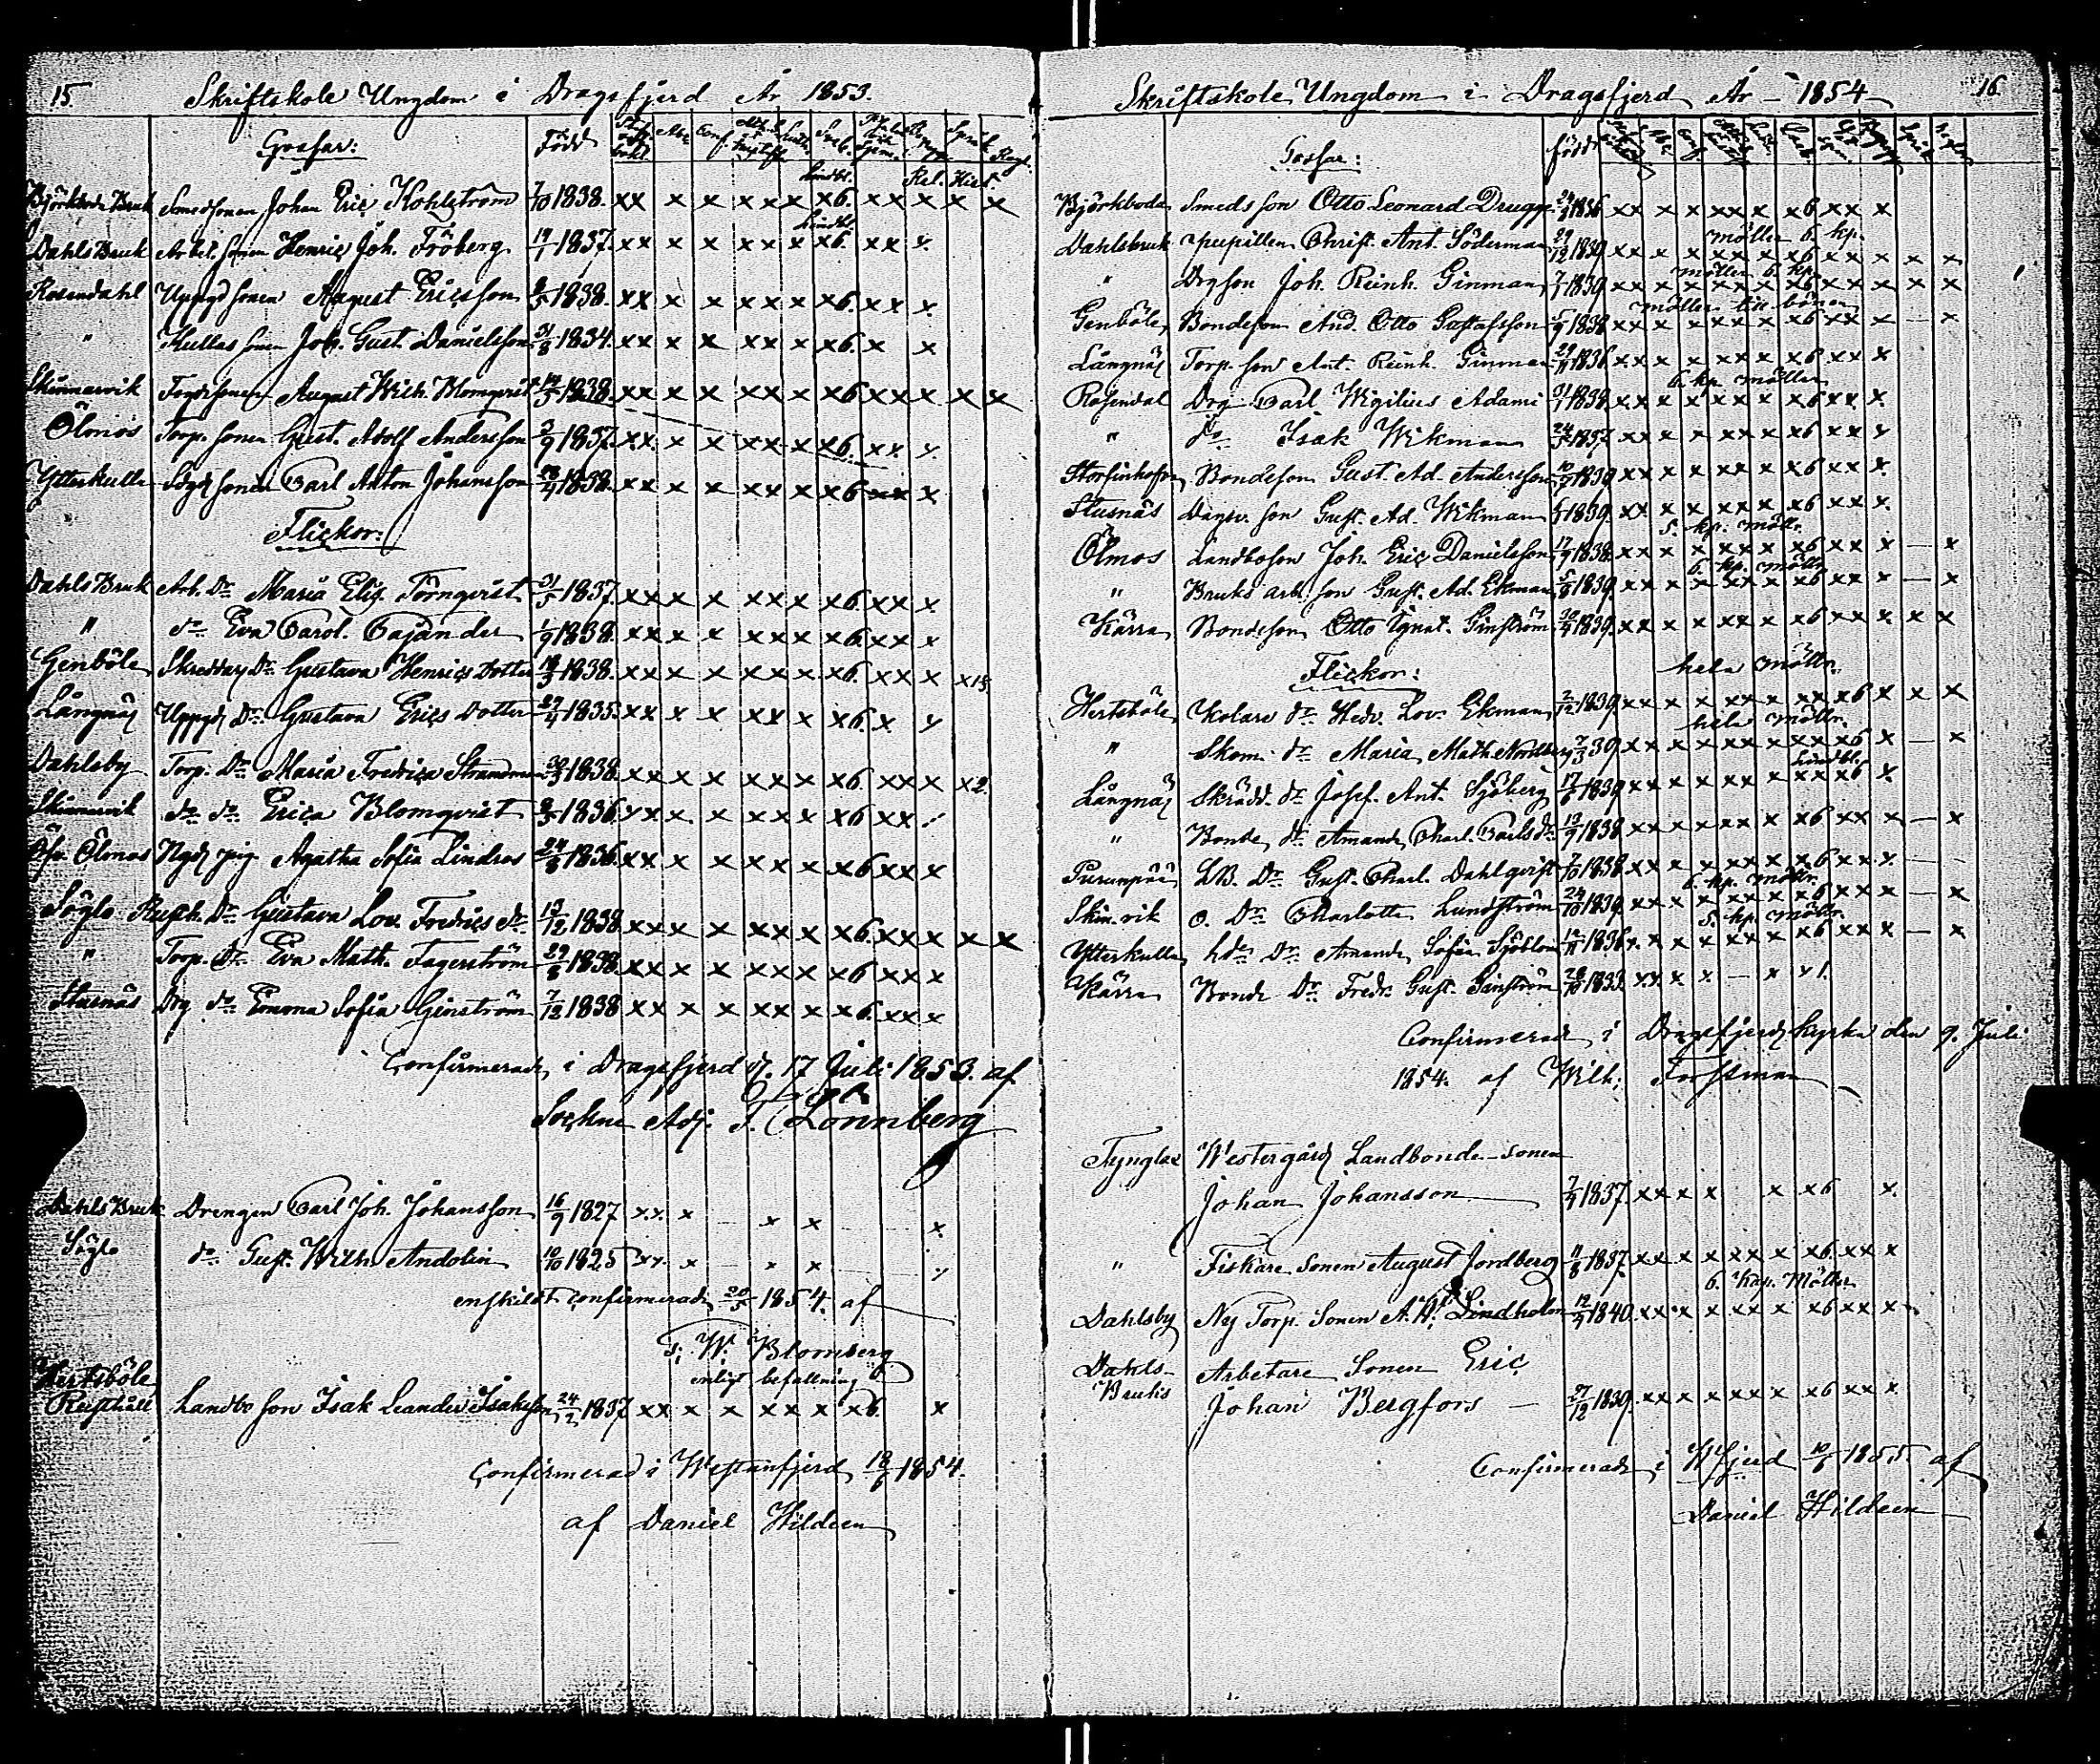 15.
Skriftskole Ungdom i Dragsfjerd År 1853.
Gossar: Född
Lindbl. Rel. Hist.
Björkboda Bruk Smedsonen Johan Eric Kohlström 7/10 1838. xx x x xx x x6. xx x x x
Lindbl.
Dahls Bruk Arbet. sonen Henric Joh. Fröberg 19/1 1837. xx x x xx x x6. xx x
Rosendahl Uppgds sonen August Ericsson 1838. xx x x xx x x6. xx x
" Kullas sonen Joh. Gust. Danielsson 31/8 1834. xx x x xx x x6. x x
Skinnarvik August Wilh. Blomqvist 1838. xx x x xx x x6 xx x x x
Ölmos Torp. sonen Gust. Adolf Andersson 3/9 1837. xx x x xx x x6. xx x
Ytterkulla sonen Carl Anton Johansson 1838. xx x x xx x x6 xx x
Flickor:
Dahls Bruk Arb. Dr Maria Elis. Törnqvist 31/5 1837. xx x x xx x x6 xx x
" do Eva Carol. Cajander 1/9 1838. xx x x xx x x6. xx x
Genböle Skreddars Dr Gustava Henrics Dotter 1838. xx x x xx x x6. xx x
Långnäs Uppgds Dr Gustava Erics Dotter 29/4 1835. xx x x xx x x6. x x
Dahlsby Torp. Dr Maria Fredrica 1838. xx x x xx x x6. xx x x2.
Skinnarvik do do Erica Blomqvist 1836. xx x x xx x x6 xx
Ölmos pig. Agatha Sofia Lindros 24/8 1836. xx x x xx x x6 xx x
Söglo Rusth. Dr Gustava Lov. Fredrics dr 13/12 1838. xx x x xx x x6. xx x x x
" Torp. Dr Eva Math. Fagerström 29/8 1838. xx x x xx x x6 xx x
Stusnäs Drg do Emma Sofia Ginström 7/12 1838 xx x x xx x x6. xx x
Confirmerade i Dragsfjerd d. 17 Juli 1853. af
Sockne Adj. F. Lönnberg
Dahls Bruk Drengen Carl Joh. Johansson 16/9 1827 xx x x x x
Söglo do Gust. Wilh. Andolin 10/10 1825 xx x x x
enskildt confirmerade 20/5 1854. af
F. W. Blomberg
enligt befallning
Hertsböle
Rusthåll Landbo son Isak Leander Isaksson 24/2 1837 xx x x xx x x6. x
Confirmerad i Westanfjerd 18/6 1854.
af Daniel Hildeen
16.
Skriftskole Ungdom i Dragsfjerd År 1854
Gossar: född
Björkboda Smeds son Otto Leonard Drugge 1836 xx x x xx x x6 xx x
möller 6. kp.
Dahlsbruk pupillen Christ. Ant. Söderman 29/12 1839 xx x x xx x x6 xx x x x
möller 6 kp.
" Drgson Joh. Reinh. Ginman 1839 xx x x xx x x6 xx x x x
möller till bönen
Genböle Bondeson And. Otto Gustafsson 1838 xx x x xx x x6 xx x — x
Långnäs Torp. son Ant. Reinh. Ginman 29/11 1836. xx x x xx x x6 xx x
6. kp. möller
Rosendal Drg Carl Wigilius Adami 31/1 1838 xx x x xx x x6 xx x
" do Isak Wikman 1837 xx x x xx x x6 xx x
Storfinhofva Bondeson Gust. Ad. Andersson 1839 xx x x xx x x6 xx x
Stusnäs son Gust. Ad. Wikman 1839. xx x x xx x x6 xx x
5. kp. möll.
Ölmos Landboson Joh. Eric Danielsson 17/9 1838. xx x x xx x x6 xx x — x
6. kp. möll.
" Bruks arb. son Gust. Ad. Ekman 5/8 1839 xx x x xx x x6 xx x — x
Kärra Bondeson Otto Ignat. Ginström 1839 xx x x xx x x6 xx x x x
Flickor: hela möllr.
Hertsböle Kolare dr Hedv. Lov. Ekman 2/12 1839 xx x x xx x x x6 x x x
hela möllr.
" Skom. dr Maria Math. 39. xx x x xx x x x6 x — x
Lindbl.
Långnäs Skrädd. dr Josef. Ant. Sjöberg 17/6 1839 xx x x xx x x x6 x
" Bonde dr Amanda Charl. Carls dr 13/9 1838 xx x x xx x x6 xx x — x
LB. Dr Gust. Charl. Dahlqvist 7/10 1838 xx x x xx x x6 xx x —
6. kp. möllr.
Skin.vik o. Dr Charlotta Lundström 24/10 1839 xx x x xx x x6 xx x — x
5. kp. möllr.
Ytterkulla Dr Amanda Sofia Sjöblom 1838 xx x x xx x x6 xx x — x
Kärra Bonde Dr Fredr. Gust. Ginström 28/10 1833 xx x x — x x1.
Confirmerade i Dragsfjerds kyrka den 9. Juli
1854. af Wilh. Forssman
Tynglax Westergårds Landbonde-sonen
Johan Johansson 1837. xx x x x x6 x
" Fiskare Sonen August Jordberg 11/8 1837. xx x x xx x x6 xx x
6. Kap. Möller
Dahlsby Ny Torp. Sonen A. W. Lindholm 1840. xx x x xx x x6 xx x
Dahls- Arbetare Sonen Eric
Bruks Johan Bergfors — 27/12 1839. xx x x xx x x6 xx x
Confirmerade i Wfjerd 10/6 1855. af
Daniel Hildeen